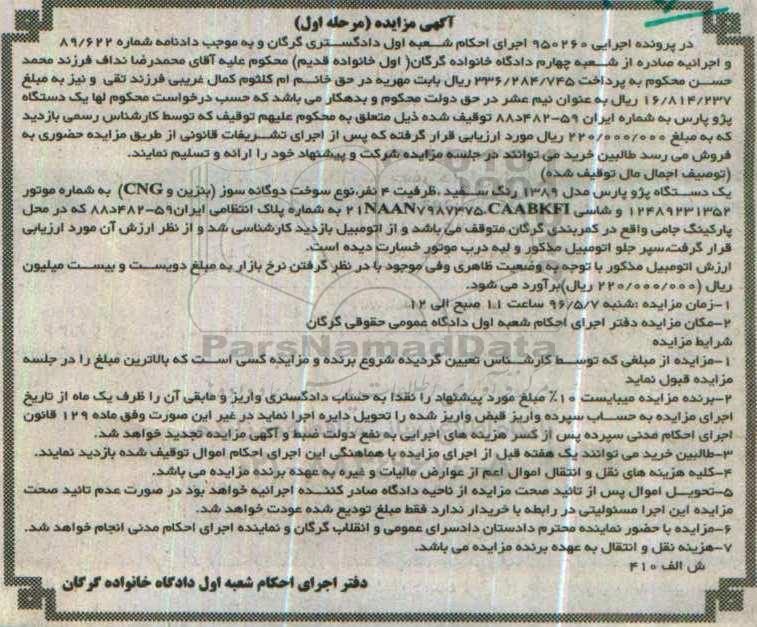 آگهی مزایده (مرحله اول)
در پرونده اجرایی ۹۵۰۲۶۰ اجرای احکام شعبه اول دادگستری گرگان و به موجب دادنامه شماره ۸۹/۶۲۲
و اجرائیه صادره از شعبه چهارم دادگاه خانواده گرگان( اول خانواده قدیم) محکوم علیه آقای محمدرضا نداف فرزند محمد
حسن محکوم به پرداخت ۳۳۶/۲۸۴/۷۴۵ ریال بابت مهریه در حق خانم ام کلثوم کمال غریبی فرزند تقی و نیز به مبلغ
۱۶/۸۱۴/۲۳۷ ریال به عنوان نیم عشر در حق دولت محکوم و بدهکار می باشد که حسب درخواست محکوم لها یک دستگاه
پژو پارس به شماره ایران ۵۹-۴۸۲د۸۸ توقیف شده ذیل متعلق به محکوم علیهم توقیف که توسط کارشناس رسمی بازدید
که به مبلغ ۲۲۰/۰۰۰/۰۰۰ ریال مورد ارزیابی قرار گرفته که پس از اجرای تشریفات قانونی از طریق مزایده حضوری به
فروش می رسد طالبین خرید می توانند در جلسه مزایده شرکت و پیشنهاد خود را ارائه و تسلیم نمایند.
(توصیف اجمال مال توقیف شده)
یک دستگاه پژو پارس مدل ۱۳۸۹ رنگ سفید ،ظرفیت ۴ نفر،نوع سوخت دوگانه سوز (بنزین و CNG) به شماره موتور
۱۲۴۸۹۲۳۱۳۵۲ و شاسی NAAN۲۱CAABKFI۷۹۸۷۳۷۵ به شماره پلاک انتظامی ایران۵۹-۴۸۲د۸۸ که در محل
پارکینگ جامی واقع در کمربندی گرگان متوقف می باشد و از اتومبیل بازدید کارشناسی شد و از نظر ارزش آن مورد ارزیابی
قرار گرفت،سپر جلو اتومبیل مذکور و لبه درب موتور خسارت دیده است.
ارزش اتومبیل مذکور با توجه به وضعیت ظاهری وفی موجود با در نظر گرفتن نرخ بازار به مبلغ دویست و بیست میلیون
ریال (۲۲۰/۰۰۰/۰۰۰ ریال)برآورد می شود.
۱-زمان مزایده :شنبه ۹۶/۵/۷ ساعت ۱۱ صبح الی ۱۲
۲-مکان مزایده دفتر اجرای احکام شعبه اول دادگاه عمومی حقوقی گرگان
شرایط مزایده
ParsNamadData
۱-مزایده از مبلغی که توسط کارشناس تعیین گردیده شروع برنده و مزایده کسی است که بالاترین مبلغ را در جلسه
مزایده قبول نماید
۲-برنده مزایده میبایست ۱۰٪ مبلغ مورد پیشنهاد را نقدا به حساب دادگستری واریز و مابقی آن را ظرف یک ماه از تاریخ
اجرای مزایده به حساب سپرده واریز قبض واریز شده را تحویل دایره اجرا نماید در غیر این صورت وفق ماده ۱۲۹ قانون
اجرای احکام مدنی سپرده پس از کسر هزینه های اجرایی به نفع دولت ضبط و آگهی مزایده تجدید خواهد شد.
۳-طالبین خرید می توانند یک هفته قبل از اجرای مزایده با هماهنگی این اجرای احکام اموال توقیف شده بازدید نمایند.
۴-کلیه هزینه های نقل و انتقال اموال اعم از عوارض مالیات و غیره به عهده برنده مزایده می باشد.
۵-تحویل اموال پس از تائید صحت مزایده از ناحیه دادگاه صادر کننده اجرائیه خواهد بود در صورت عدم تائید صحت
مزایده این اجرا مسئولیتی در رابطه با خریدار ندارد فقط مبلغ تودیع شده عودت خواهد شد.
۶-مزایده با حضور نماینده محترم دادستان دادسرای عمومی و انقلاب گرگان و نماینده اجرای احکام مدنی انجام خواهد شد.
۷-هزینه نقل و انتقال به عهده برنده مزایده می باشد.
ش الف ۴۱۰
دفتر اجرای احکام شعبه اول دادگاه خانواده گرگان